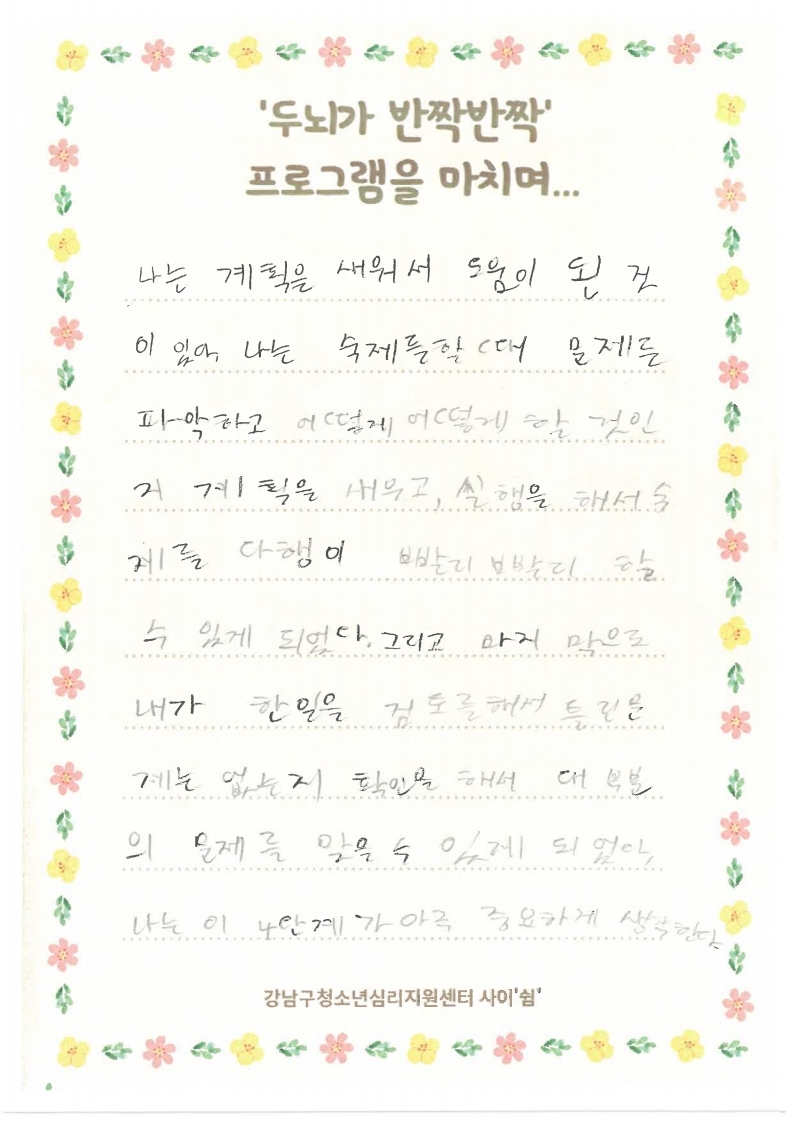 '두뇌가 반짝반짝'
프로그램을 마치며...
나는 계획을 새워서 도움이 된 것
이 있어, 나는 숙제를할 때 문제를
파악하고 어떻게 어떻게 할 것인
지 계획을 새우고, 실행을 해서 숙
제를 다행이 빠발리 빠발리 할
수 있게 되었다. 그리고 마지막으로
내가 한일을 검토를해서 틀린문
제는 없는지 확인을 해서 대부분
의 문제를 맞을 수 있게 되었어,
나는 이 4단계가 아주 중요하게 생각한다.
강남구청소년심리지원센터 사이'쉼'